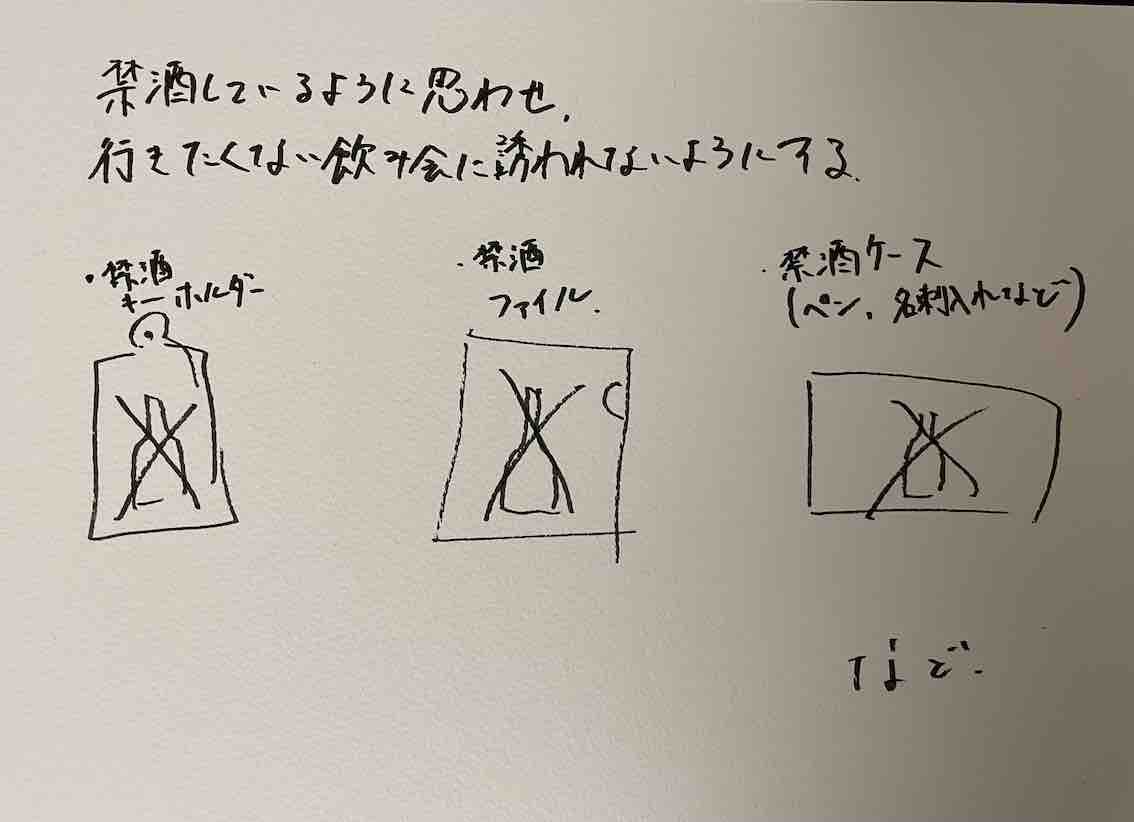 禁酒しているように思わせ、
行きたくない飲み会に誘われないようにする。
・禁酒
キーホルダー
・禁酒
ファイル.
・禁酒ケース
(ペン、名刺入れなど)
など.